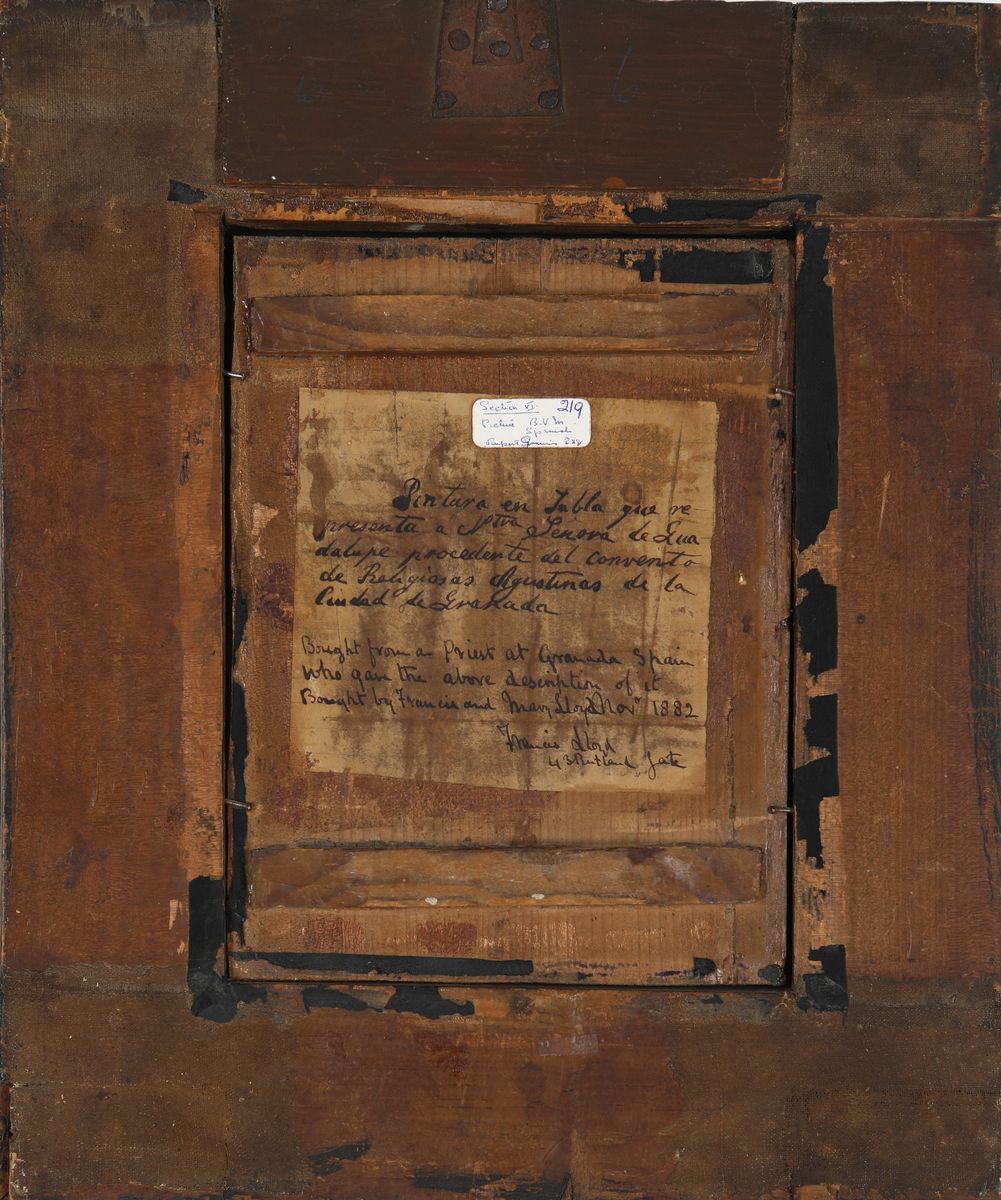 6 6
Section VI. 219
Picture B.V.M.
Spanish
Rupert Gunnis Esq
Pintura en Tabla que re
presenta a Ntra Senora de Gua-
dalupe procedente del convento
de Religiosas Agustinas de la
Ciudad de Granada
Bought from a Priest at Granada Spain
who gave the above description of it
Bought by Francis and Mary Lloyd Novr 1882
Francis Lloyd
43 Rutland Gate